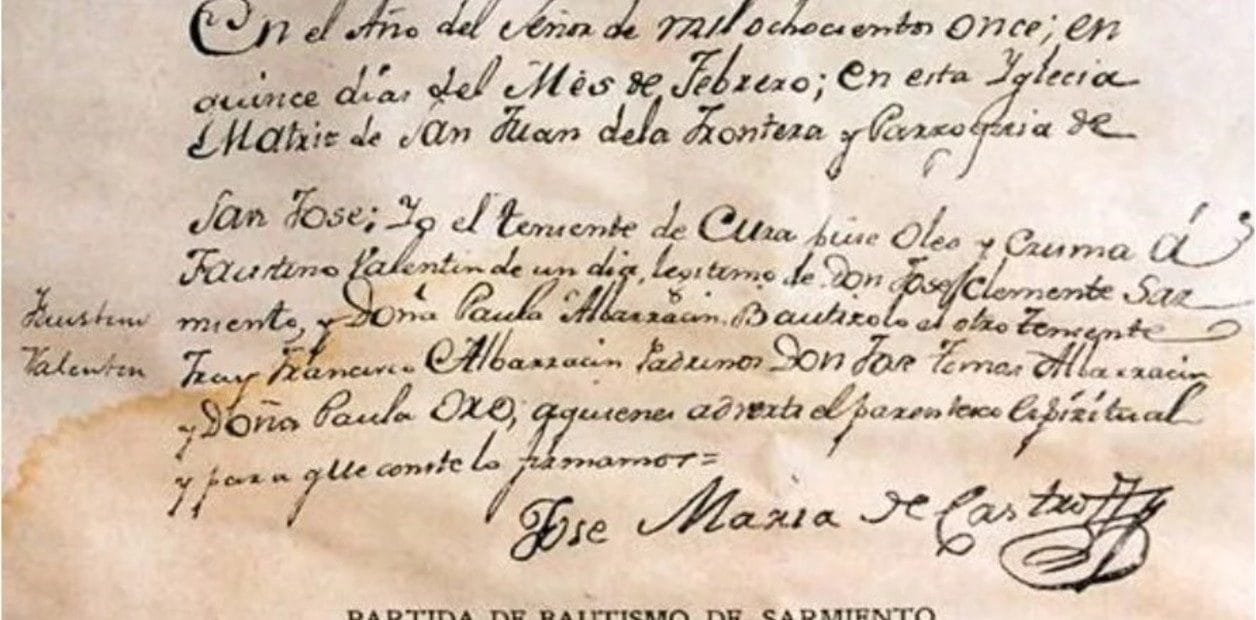 En el Año del Señor de mil ochocientos once; en
quince dias del Mes de Febrero; en esta Yglecia
Matriz de San Juan dela Frontera y Parroquia de
San Jose; Yo el teniente de Cura puse Oleo y Crisma á
Faustino Valentin de un dia, legitimo de Don Jose Clemente Sar
miento, y Doña Paula Albarracin. Bautizolo el otro teniente
Faustino
Fray Francisco Albarracin Padrinos Don Jose Tomas Albarracin
Valentin
y Doña Paula Oro; aquienes adverti el parentesco Espiritual
y para que conste lo firmamos=
Jose Maria de Castro
PARTIDA DE BAUTISMO DE SARMIENTO